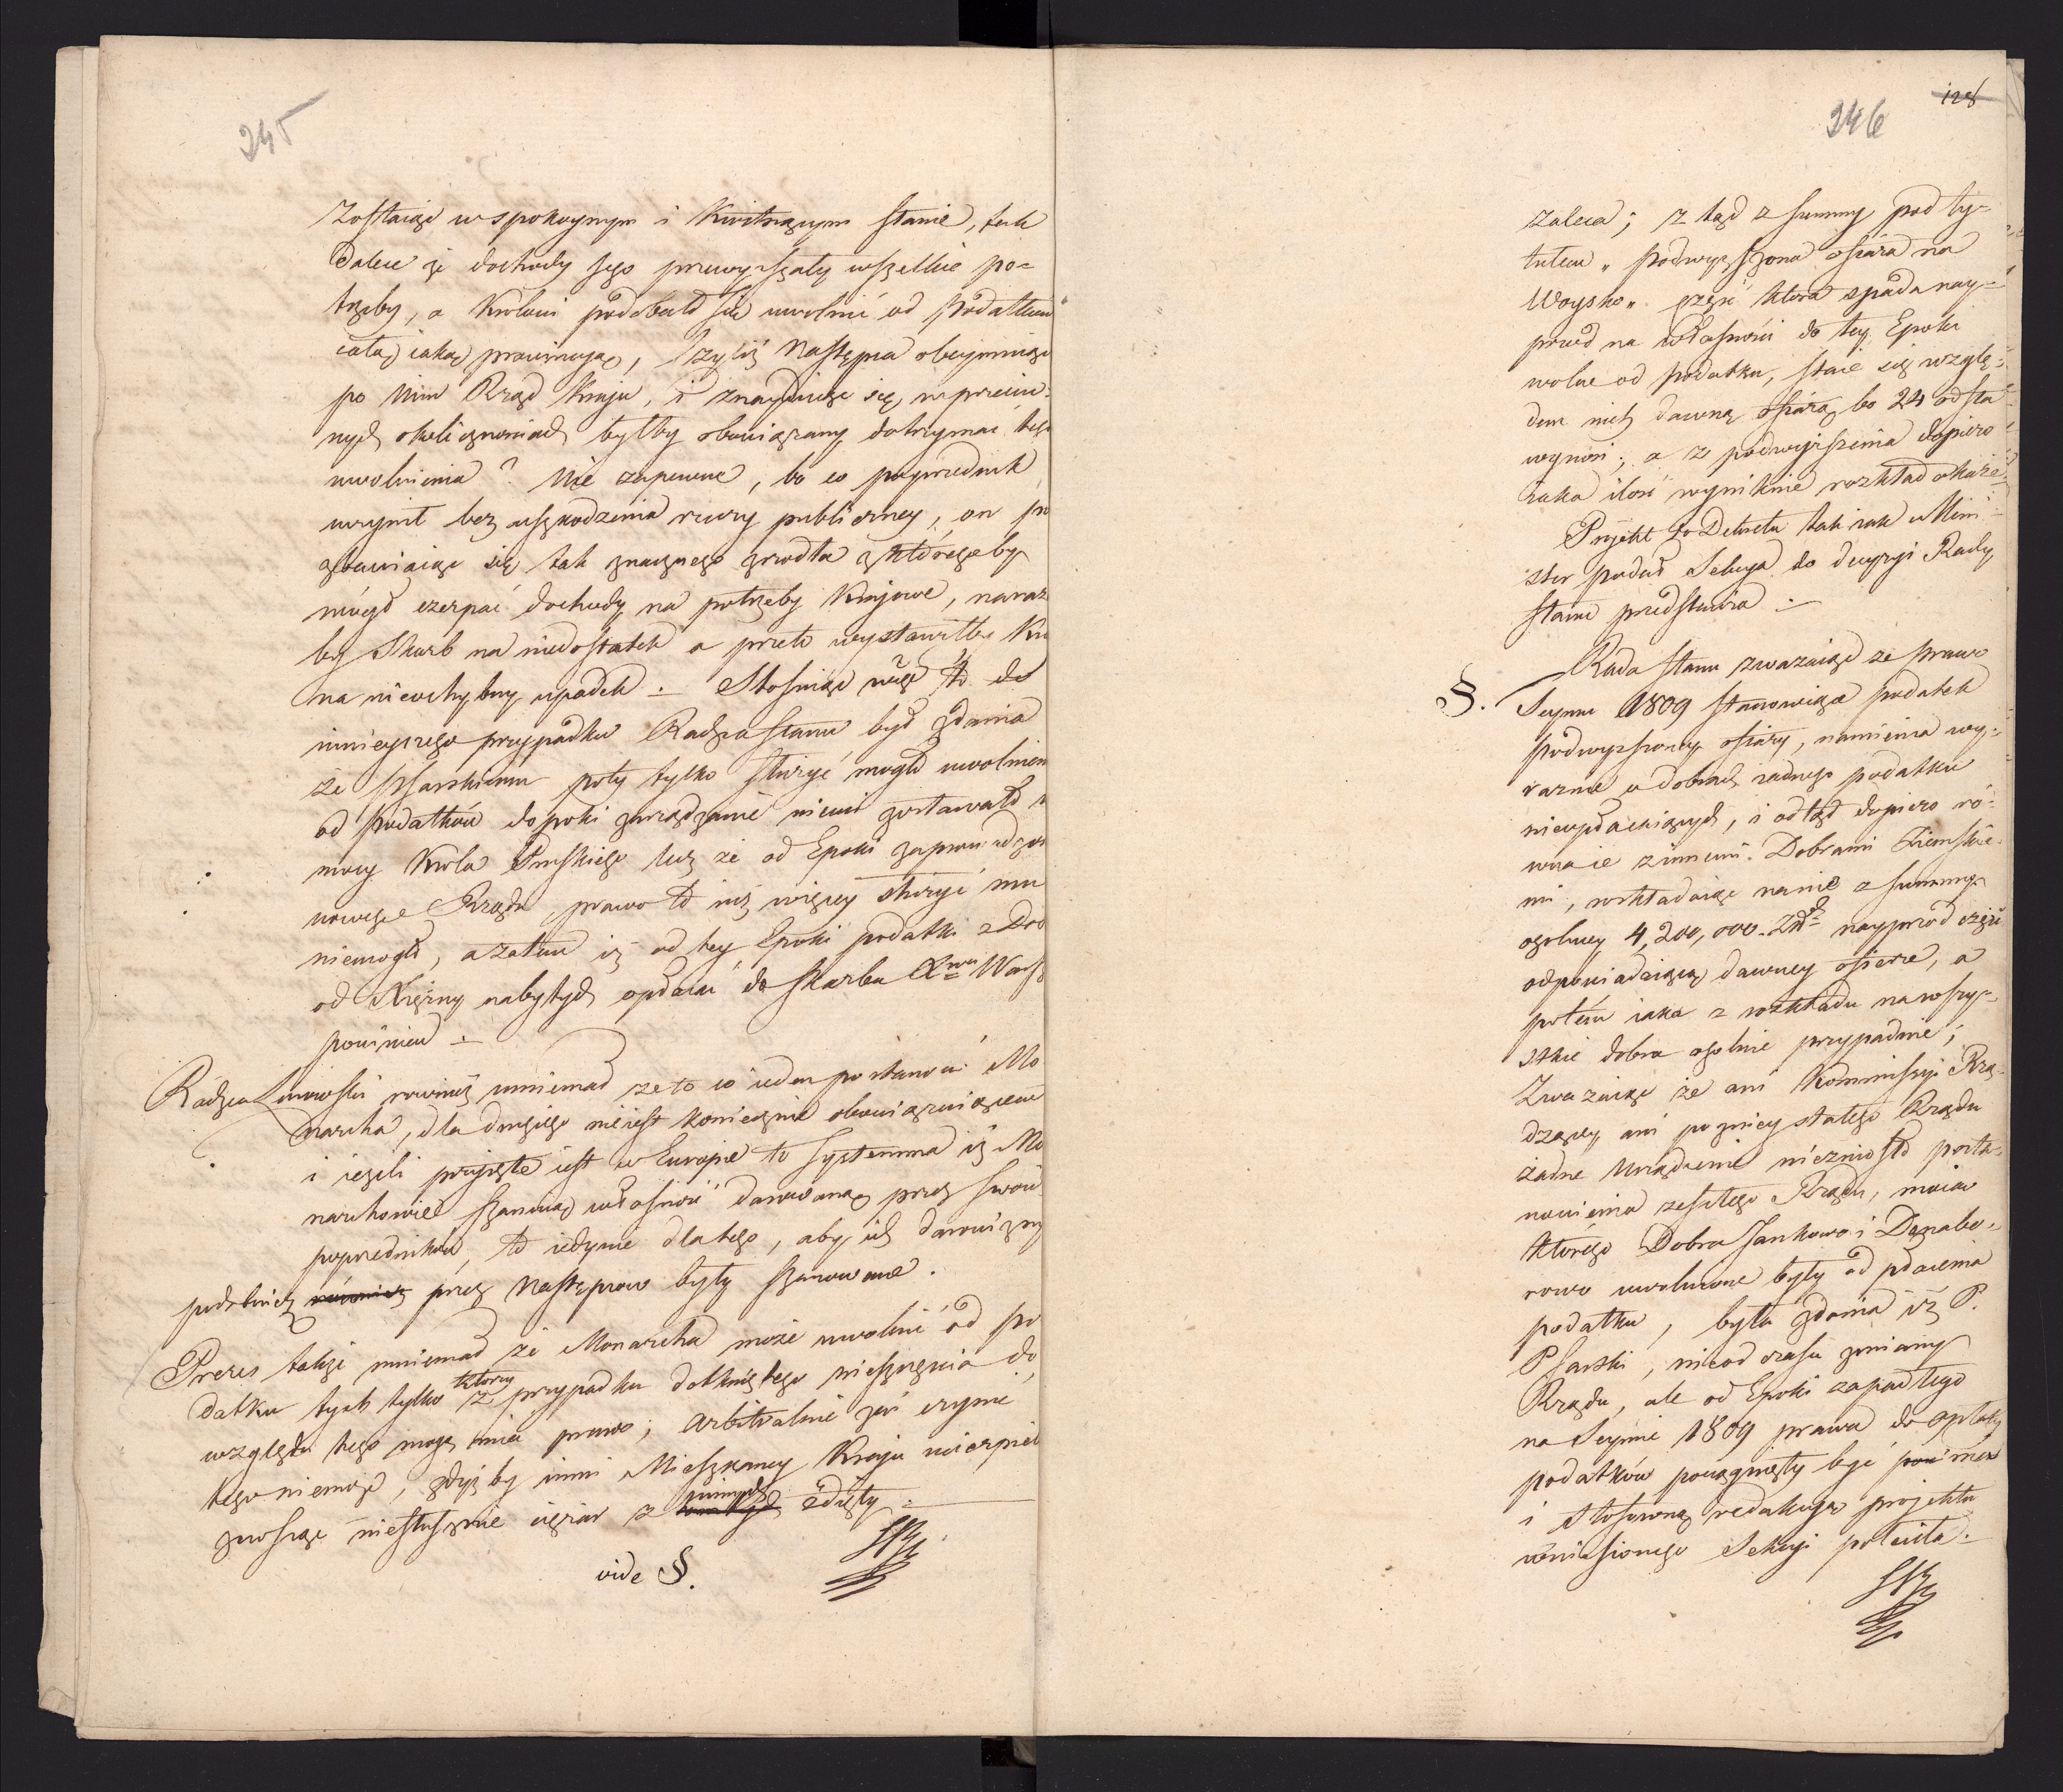 245
Zostaiąc w spokoynym i Kwitnącym stanie, tak
dalece że dochody jego przewyższały wszelkie po=
trzeby, a Krolowi podobało się uwolnić od podatku
całą iaką prowincyą, czyliż Następca obeymuiąc
po nim Rząd Kraju, i znayduiąc się w przeciw=
nych okolicznościach byłby obowiązany dotrzymać tego
uwolnienia? Nie zapewne, bo co poprzednik
uczynił bez uszkodzenia rzeczy publiczney, on po
zbawiaiąc się tak znacznego zrodła z którego by
mógł czerpać dochody na potrzeby Krajowe, naraz
by Skarb na niedostatek a przeto wystawiłby Kra
na nieochybny upadek. Stosuiąc więc to do
ninieyszego przypadku Radzca Stanu był zdania
że Psarskiemu poty tylko służyć mogło uwolnien
od podatków dopoki zarządzanie niemi zostawało w
mocy Króla Pruskiego lecz że od Epoki zaprowadzon
nowego Rządu prawo to iuż więcey służyć mu
niemogło, a zatem iż od tey Epoki podatki z Dob
od Xiężny nabytych opłacać do Skarbu Xwa Warsz
powinien.
Radzca Linowski rownież mniemał że to co ieden postanowi Mo
narcha, dla drugiego nieiest koniecznie obowiązuiącem
i ieżeli przyięte iest w Europie to systemma iż Mo
narchowie szanuią własność darowaną przez swoich
poprzedników, to iedynie dla tego, aby ich darowizny
podobnież również przez Następcow były szanowane.
Prezes także mniemał że Monarcha może uwolnić od po
datku tych tylko którzy z przypadku dotkniętego nieszczęścia do
względu tego mogą mieć prawo; arbitralnie zaś czynić
tego niemoże, gdyż by inni Mieszkancy Kraju ucierpieli
znosząc niesłusznie ciężar z innych zdięty.
vide §.
128
246
zaleca; z tąd z summy pod ty=
tułem „podwyższona ofiara na
Woysko„ część ktora spada nay=
przod na własności do tey Epoki
wolne od podatku, staie się wzglę=
dem nich dawną ofiarą bo 24 od sta
wynosi; a z podwyższenia dopiero
iaka ilość wyniknie rozkład okaże.
Projekt do Dekretu tak iak u Mini=
ster podał Sekcya do decyzyi Rady
Stanu przedstawia.
§. Rada Stanu zważaiąc że prawo
Seymu 1809 stanowiące podatek
podwyższoney ofiary, namienia wy=
raznie o dobrach żadnego podatku
nieopłacaiących, i odtąd dopiero ró=
wna ie z innemi Dobrami Ziemskie=
mi, rozkładaiąc na nie z summy
ogolney 4,200,000 Złł nayprzod część
odpowiadaiącą dawney ofierze, a
potém iaka z rozkładu na wszy=
stkie dobra ogolnie przypadnie;
Zważaiąc że ani Kommissyi Rzą=
dzącey ani poźniey stałego Rządu
żadne Urządzenie niezniosło posta=
nowienia zeszłego Rządu, mocą
którego Dobra Jankowo i Dąbro=
rowo uwolnione były od płacenia
podatku, była zdania iż P.
Psarski, nie od czasu zmiany
Rządu, ale od Epoki zapadłego
na Seymie 1809 prawa do opłaty
podatków pociągnięty być powinien
i stosowną redakcyą projektu
wniesionego Sekcyi poleciła.